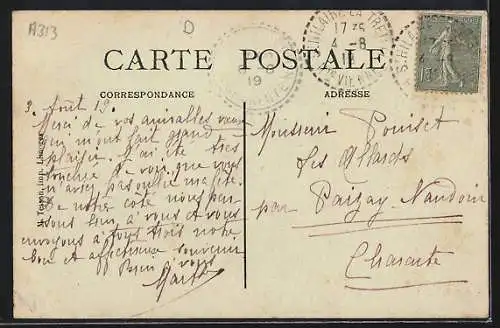 A313
D
CARTE POSTALE
CORRESPONDANCE
ADRESSE
HILAIRE-LA-TREI
17 35
4 -8
VIENNE
19
3. Août 19.
Merci de vos aimables vœux
qui m'ont fait grand
plaisir. J'ai été très
touchée de voir que vous
n'aviez pas oublié ma fête.
De notre côté nous pen
sons bien à vous et vous
envoyons à tous trois notre
bon et affectueux souvenir
Bien à vous
Monsieur Pouiset
Les Allards
par Paizay-Naudouin
Charente
Imp. Limoges